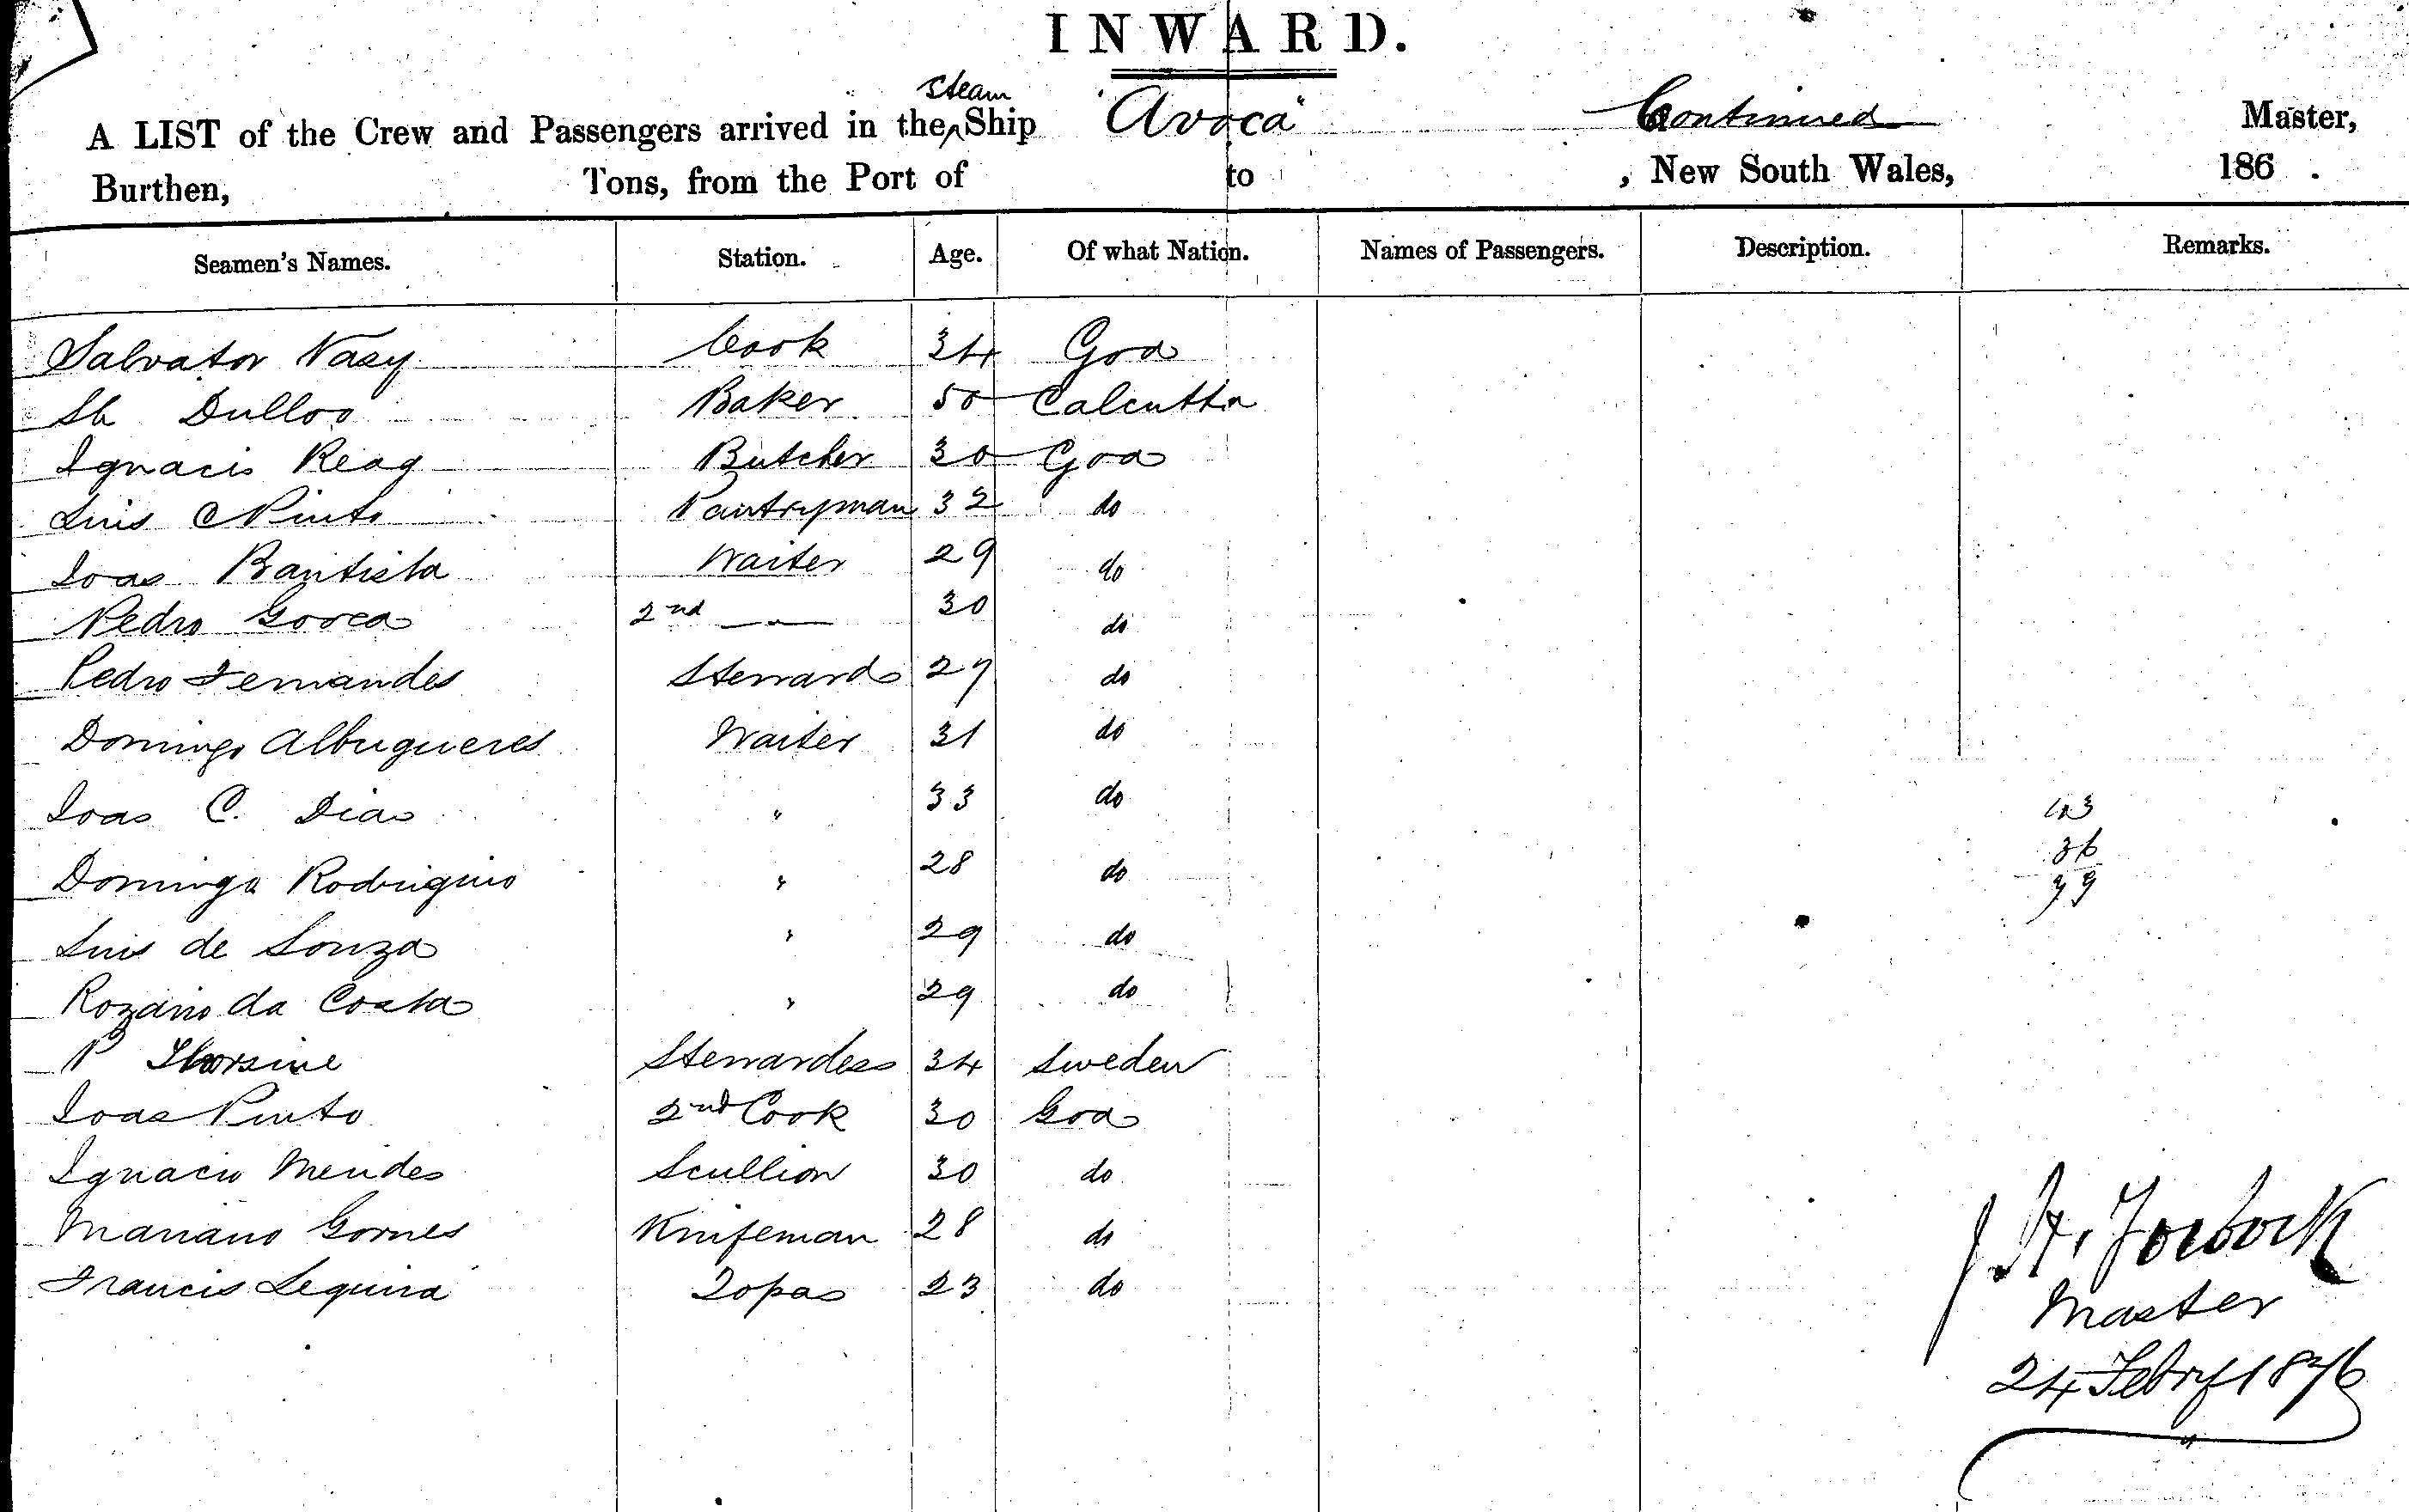 INWARD.
A LIST of the Crew and Passengers arrived in the ^ steam Ship "Avoca" Continued Master,
Burthen, Tons, from the Port of to , New South Wales, 186 .
Seamen's Names. Station. Age. Of what Nation. Names of Passengers. Description. Remarks.
Salvator Vasy Cook 34 Goa
Sh Dulloo Baker 50 Calcutta
Ignacis Reag Butcher 30 Goa
Luis C Pinto Pantryman 32 do
Joas Bautista Waiter 29 do
Pedro Gooca 2nd —"— 30 do
Pedro Fernandes Steward 27 do
Domingo Albugueres Waiter 31 do
Joas C. Dias " 33 do
Domingo " 28 do
Luis de Souza " 29 do
Rozario da Costa " 29 do
P Stewardess 34 Sweden
Joas Pinto 2nd Cook 30 Goa
Ignacio Mendes Scullion 30 do
Mariano Gomes Knifeman 28 do
Francis Sequira Topas 23 do
36
79
J. H.
Master
24 Febry 1876